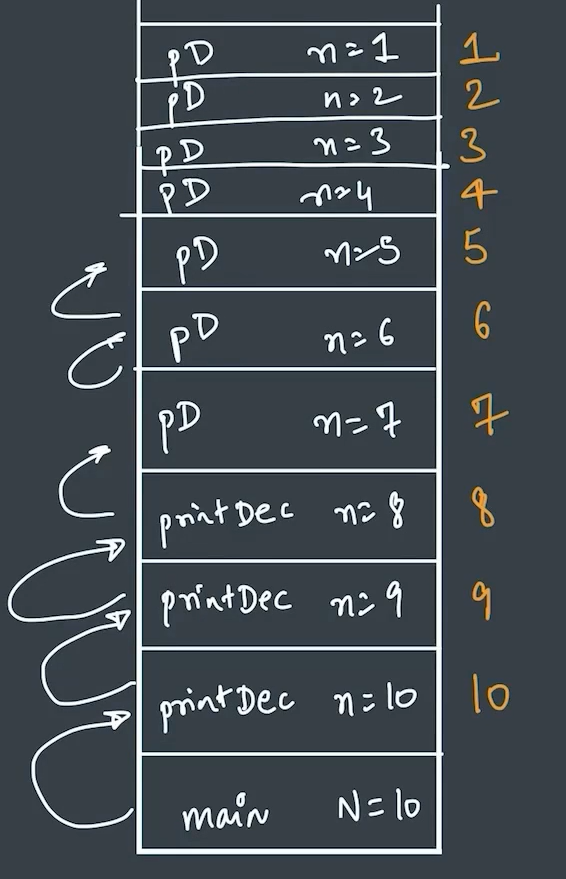 pD n=1 1
pD n=2 2
pD n=3 3
pD n=4 4
pD n=5 5
pD n=6 6
pD n=7 7
printDec n=8 8
printDec n=9 9
printDec n=10 10
main N=10